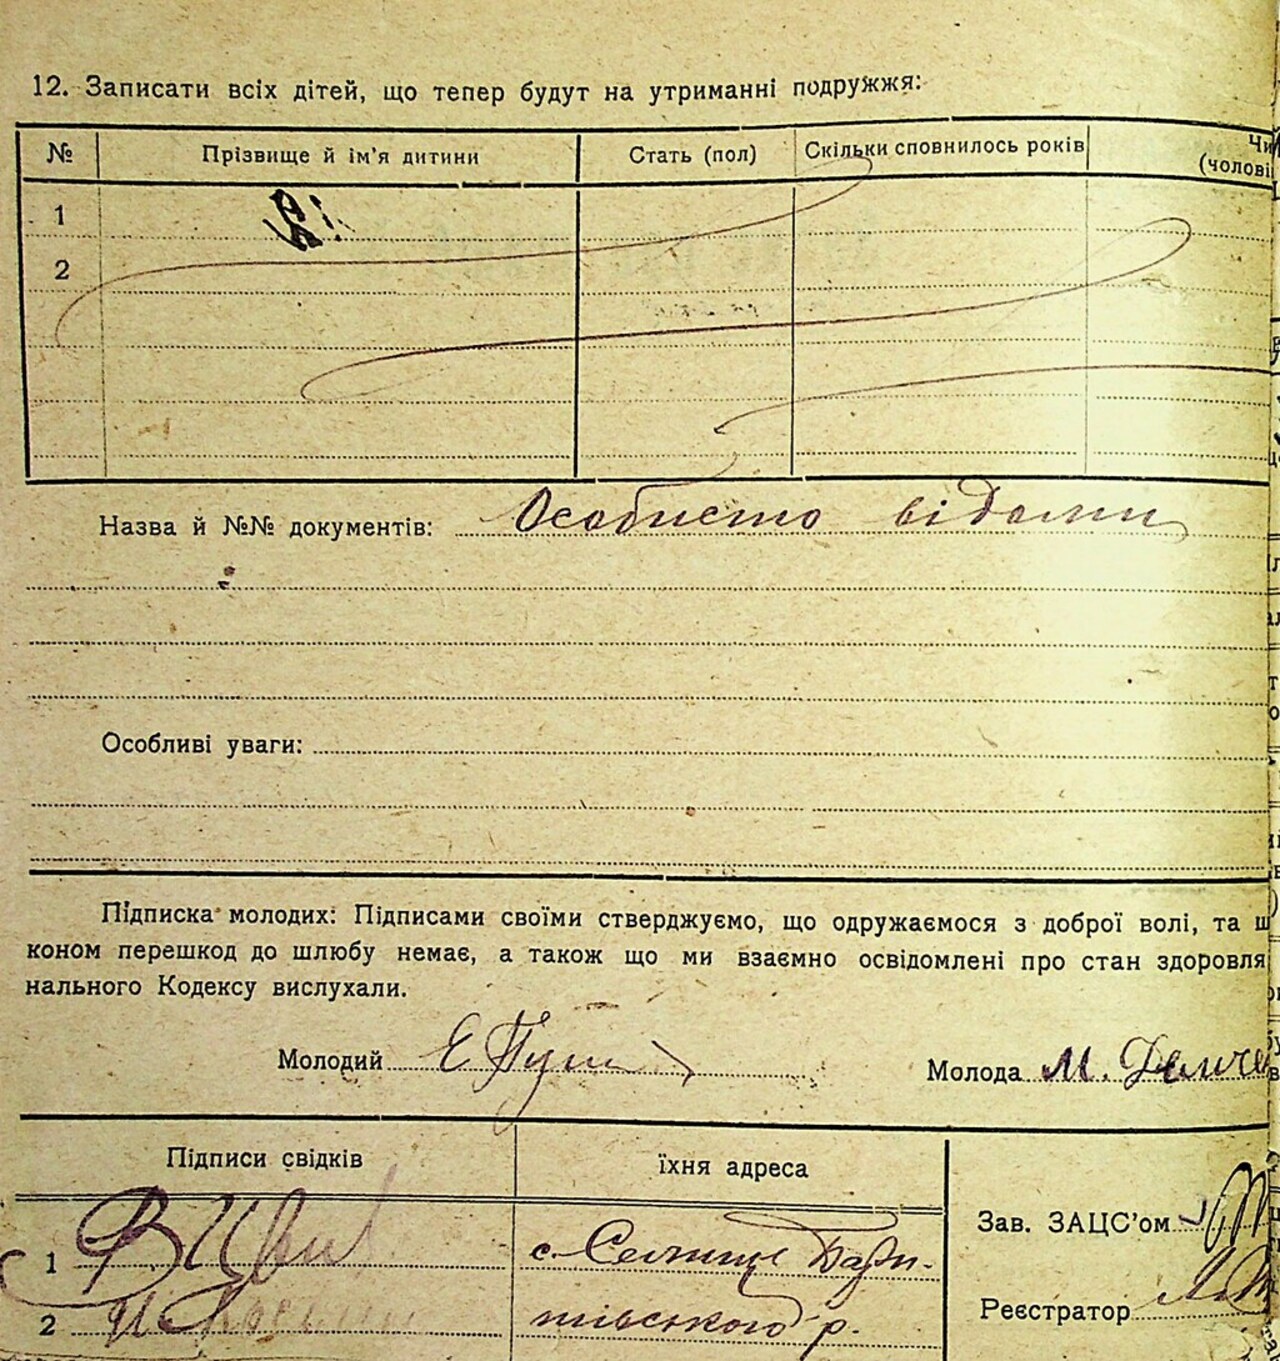 12. Записати всіх дітей, що тепер будут на утриманні подружжя:
№ Прізвище й ім'я дитини Стать (пол) Скільки сповнилось років Чи (чолові
1
2
Назва й №№ документів: Особисто відоми
Особливі уваги:
Підписка молодих: Підписами своїми стверджуємо, що одружаємося з доброї волі, та щ
коном перешкод до шлюбу немає, а також що ми взаємно освідомлені про стан здоровля
нального Кодексу вислухали.
Молодий Е Пуш Молода М. Демче
Підписи свідків їхня адреса
Зав. ЗАЦС'ом
1 с. Селище Бари-
Реєстратор
2 шівського р.